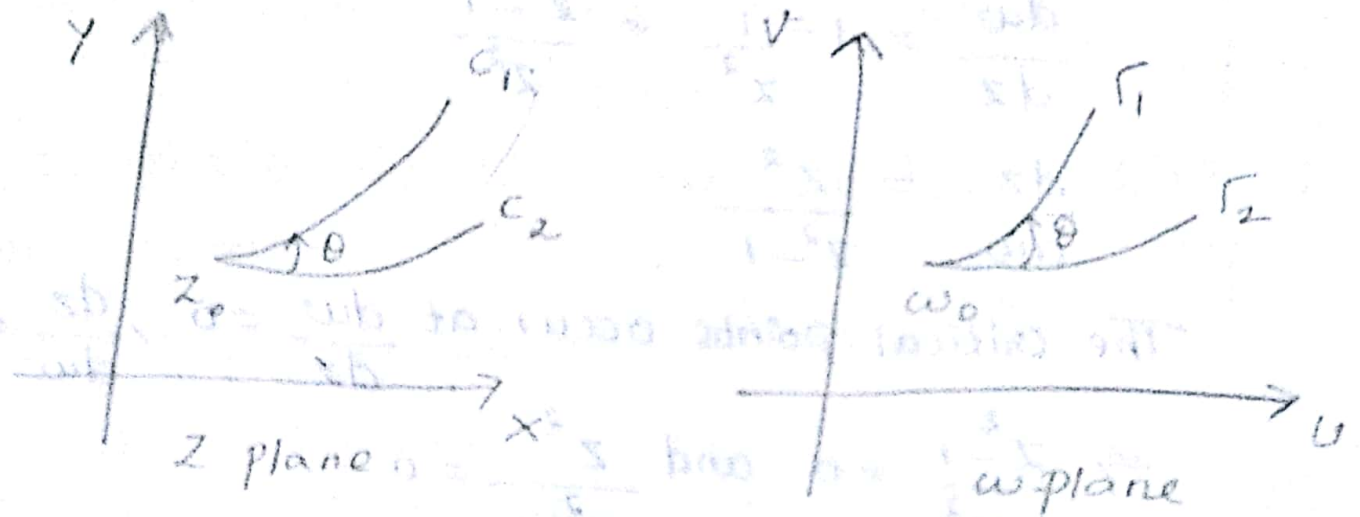 Y
C₁
C₂
θ
Z₀
X
Z plane
V
Γ₁
Γ₂
θ
ω₀
U
ω plane